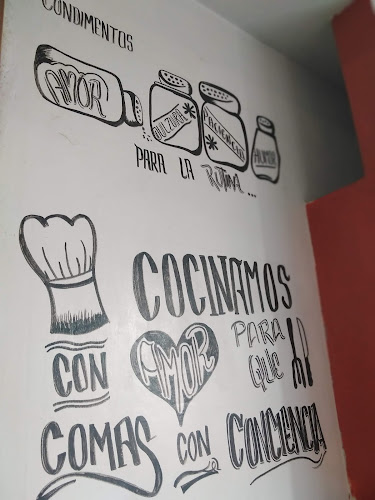 CONDIMENTOS
AMOR
DULZURA
PACIENCIA
HUMOR
PARA LA RUTINA ...
COCINAMOS
CON AMOR PARA QUE
COMAS CON CONCIENCIA